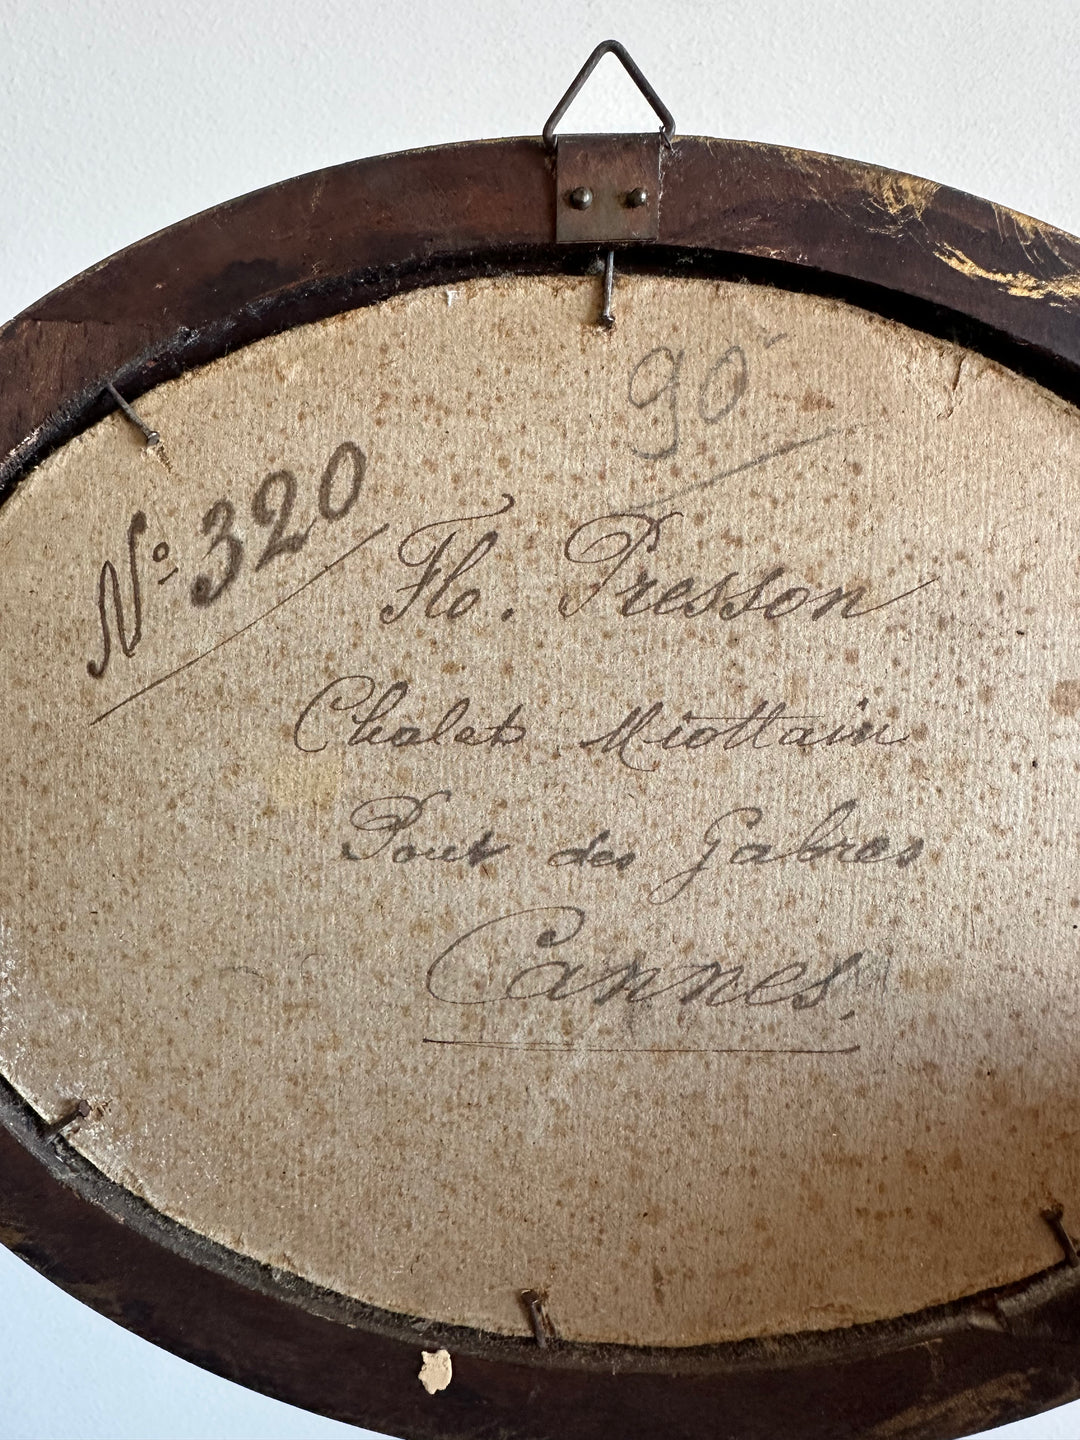 90-
Nº 320
Flo. Presson
Chalet Miottain
Pont des Gabres
Cannes.